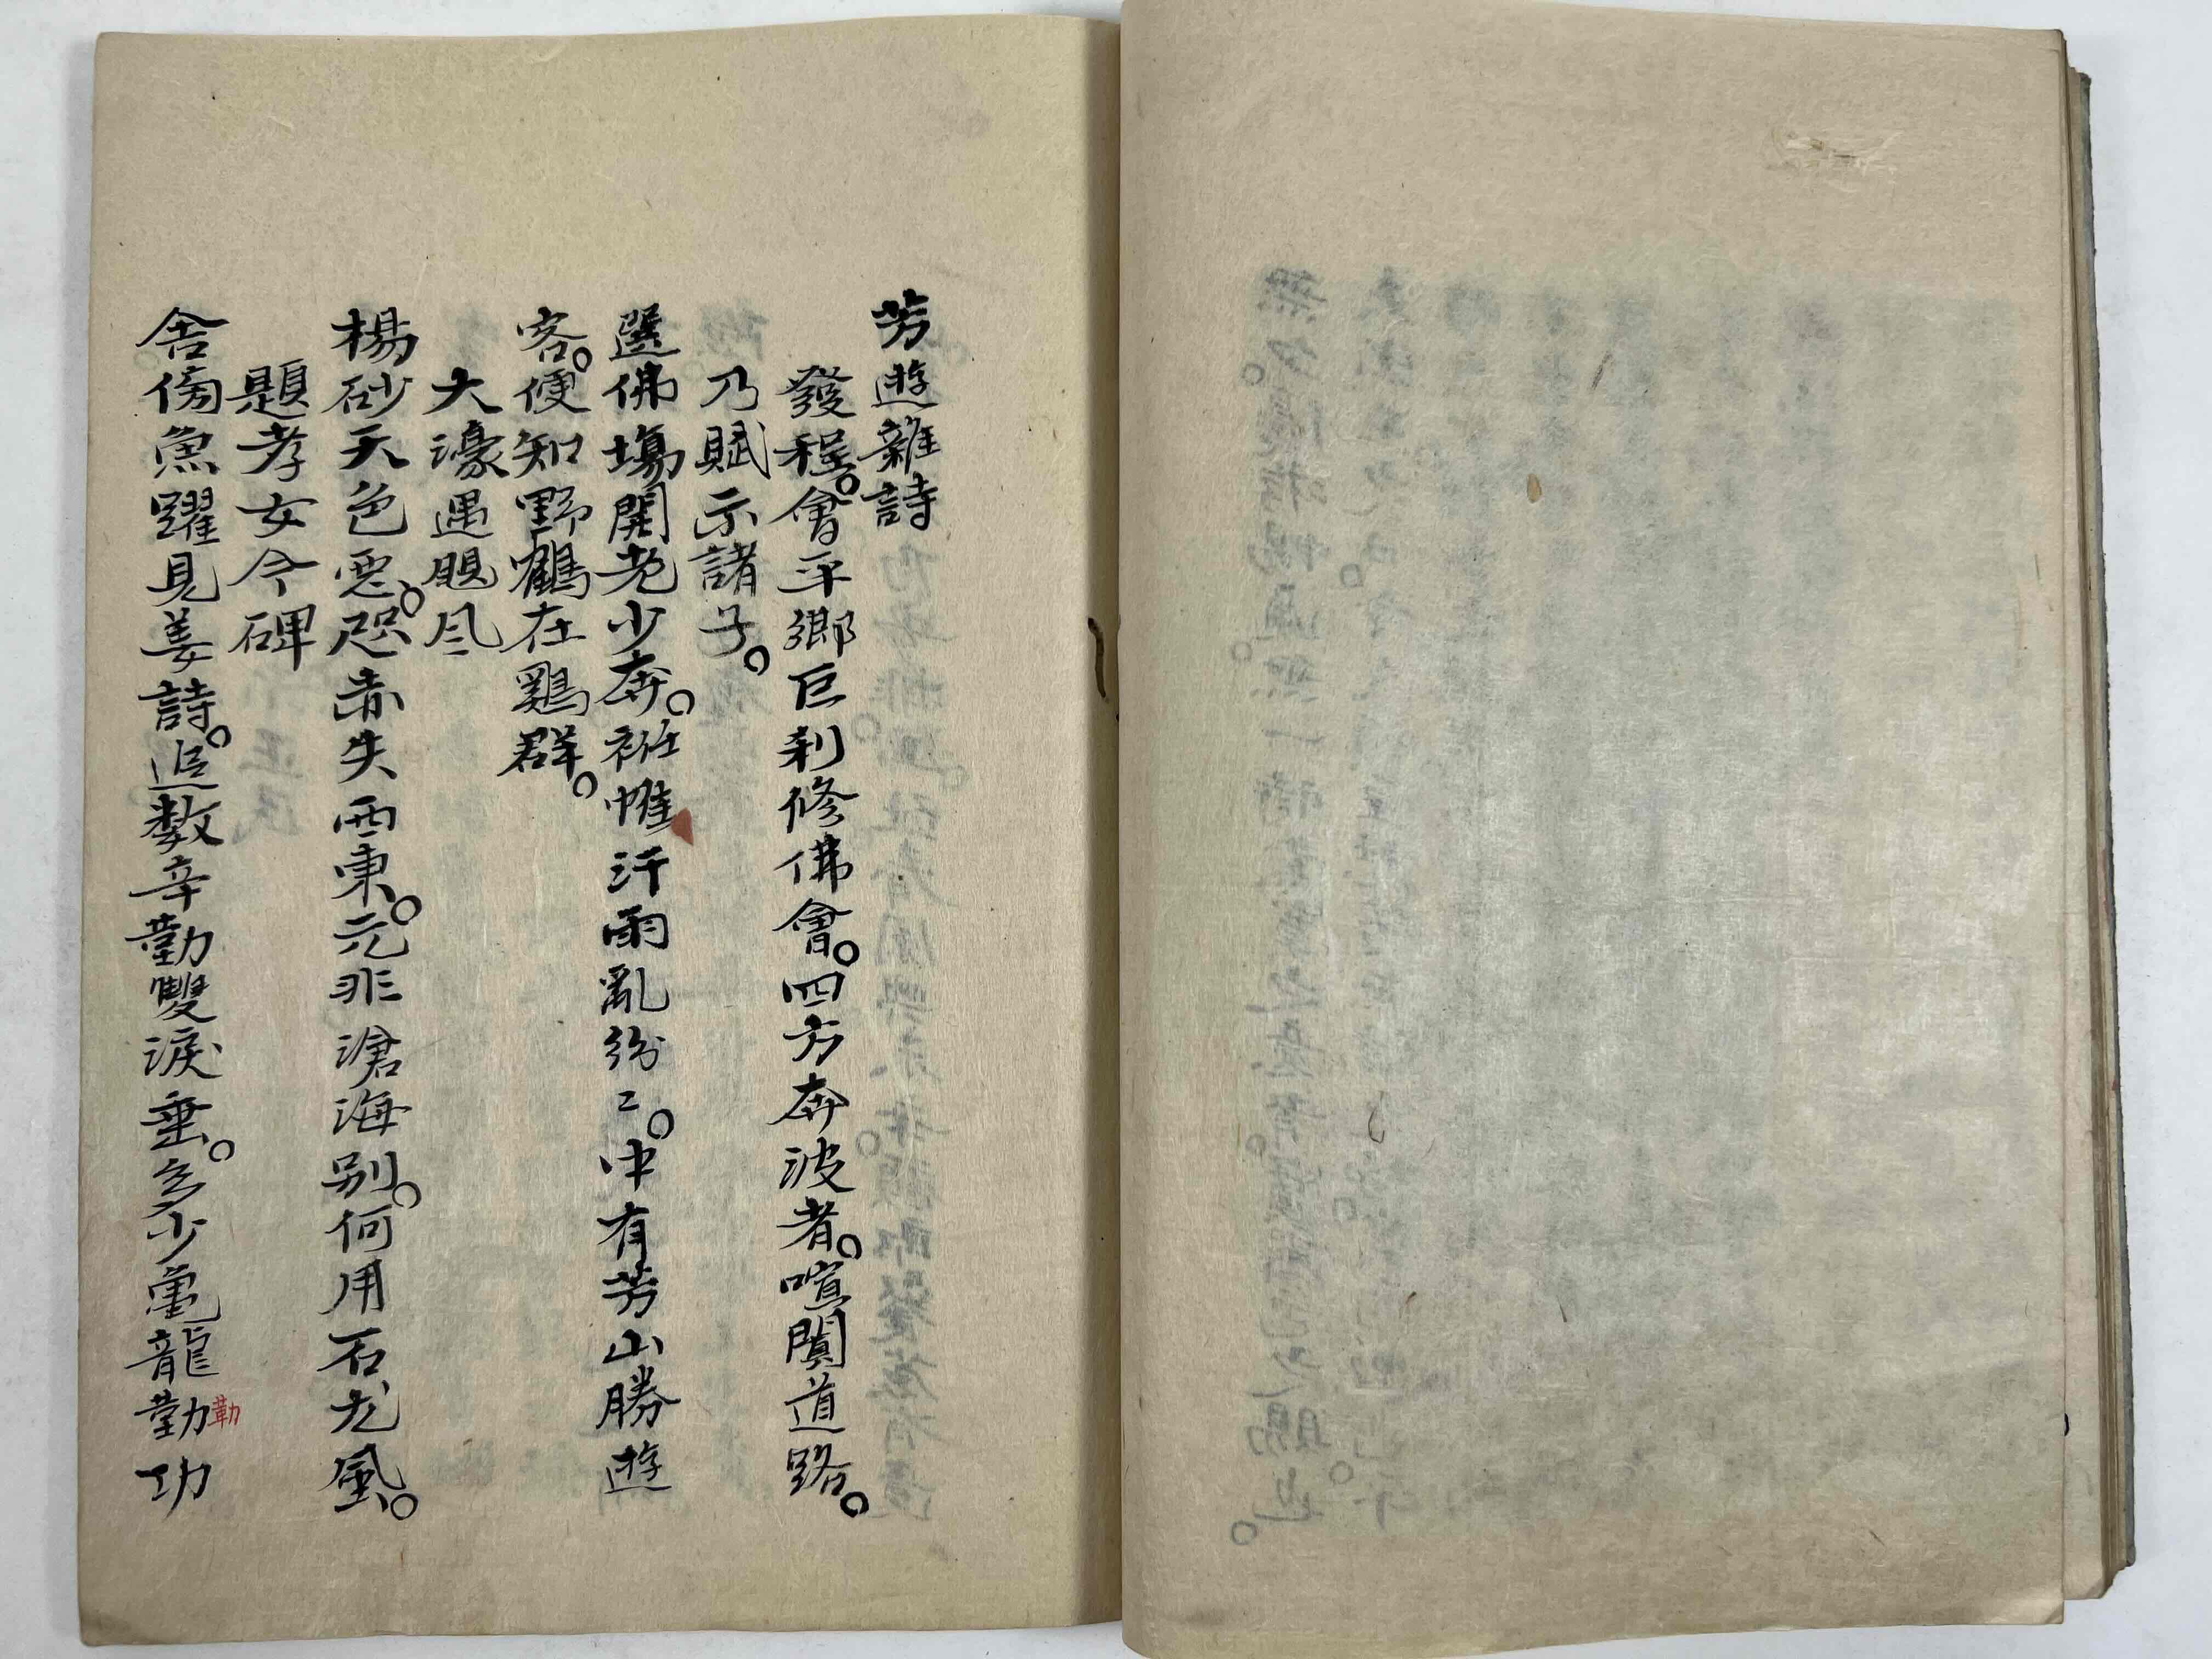 芳遊雜詩
發程。會平鄉巨刹修佛會。四方奔波者。喧闐道路。
乃賦示諸子。
選佛場開老少奔。袵帷汗雨亂紛〻。中有芳山勝遊
客。便知野鶴在鷄群。
大濠遇颶風
楊砂天色惡。咫赤失西東。元非滄海別。何用石尤風。
題孝女今碑
舍傍魚躍見姜詩。追數辛勤雙淚垂。多少亀龍勤功
勤